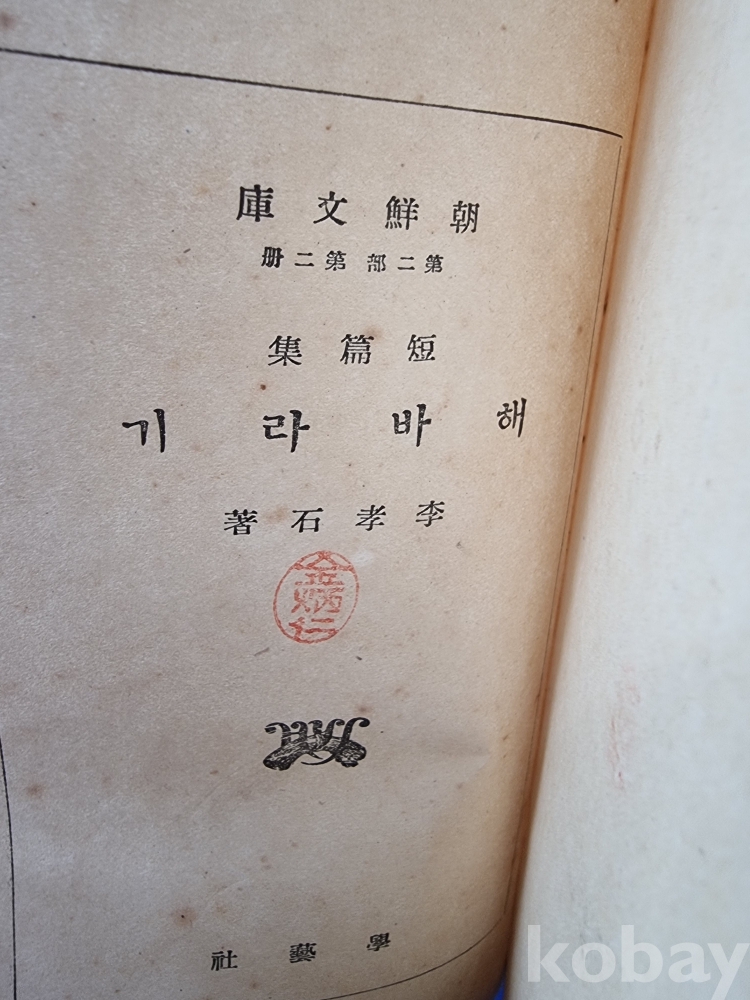 朝鮮文庫
第二部 第二册
短篇集
해바라기
李孝石著
學藝社
kobay